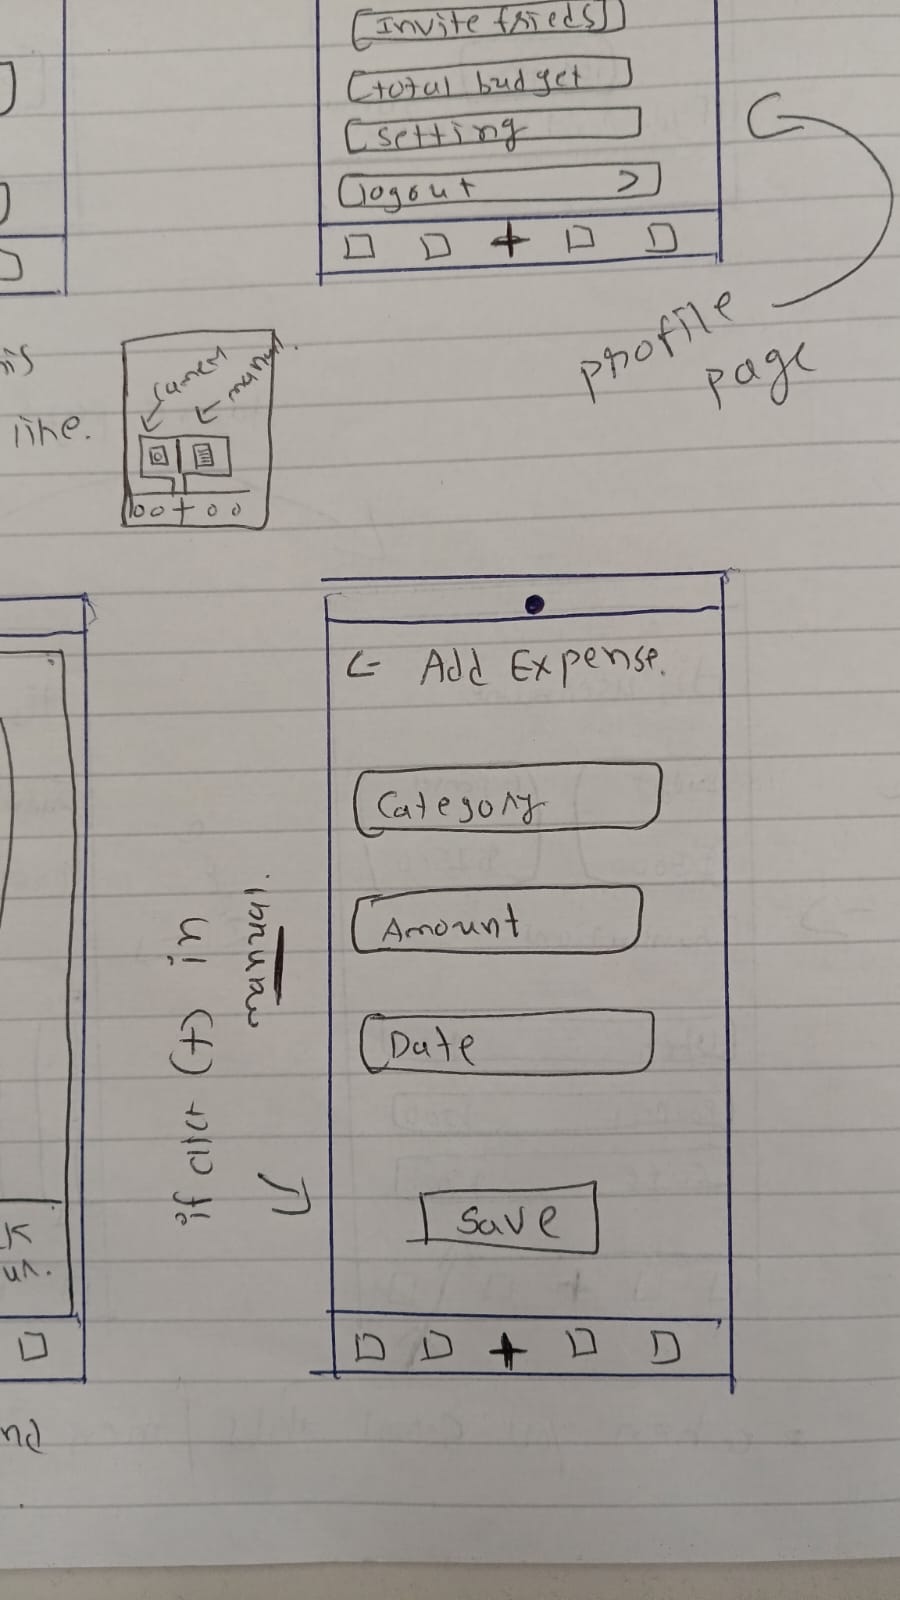 Invite frieds
total budget
setting
logout >
+
profile
page
his
line.
camera
manual.
+
← Add Expense.
Category
Amount
Date
Save
+
if click (+) in
manual.
nd